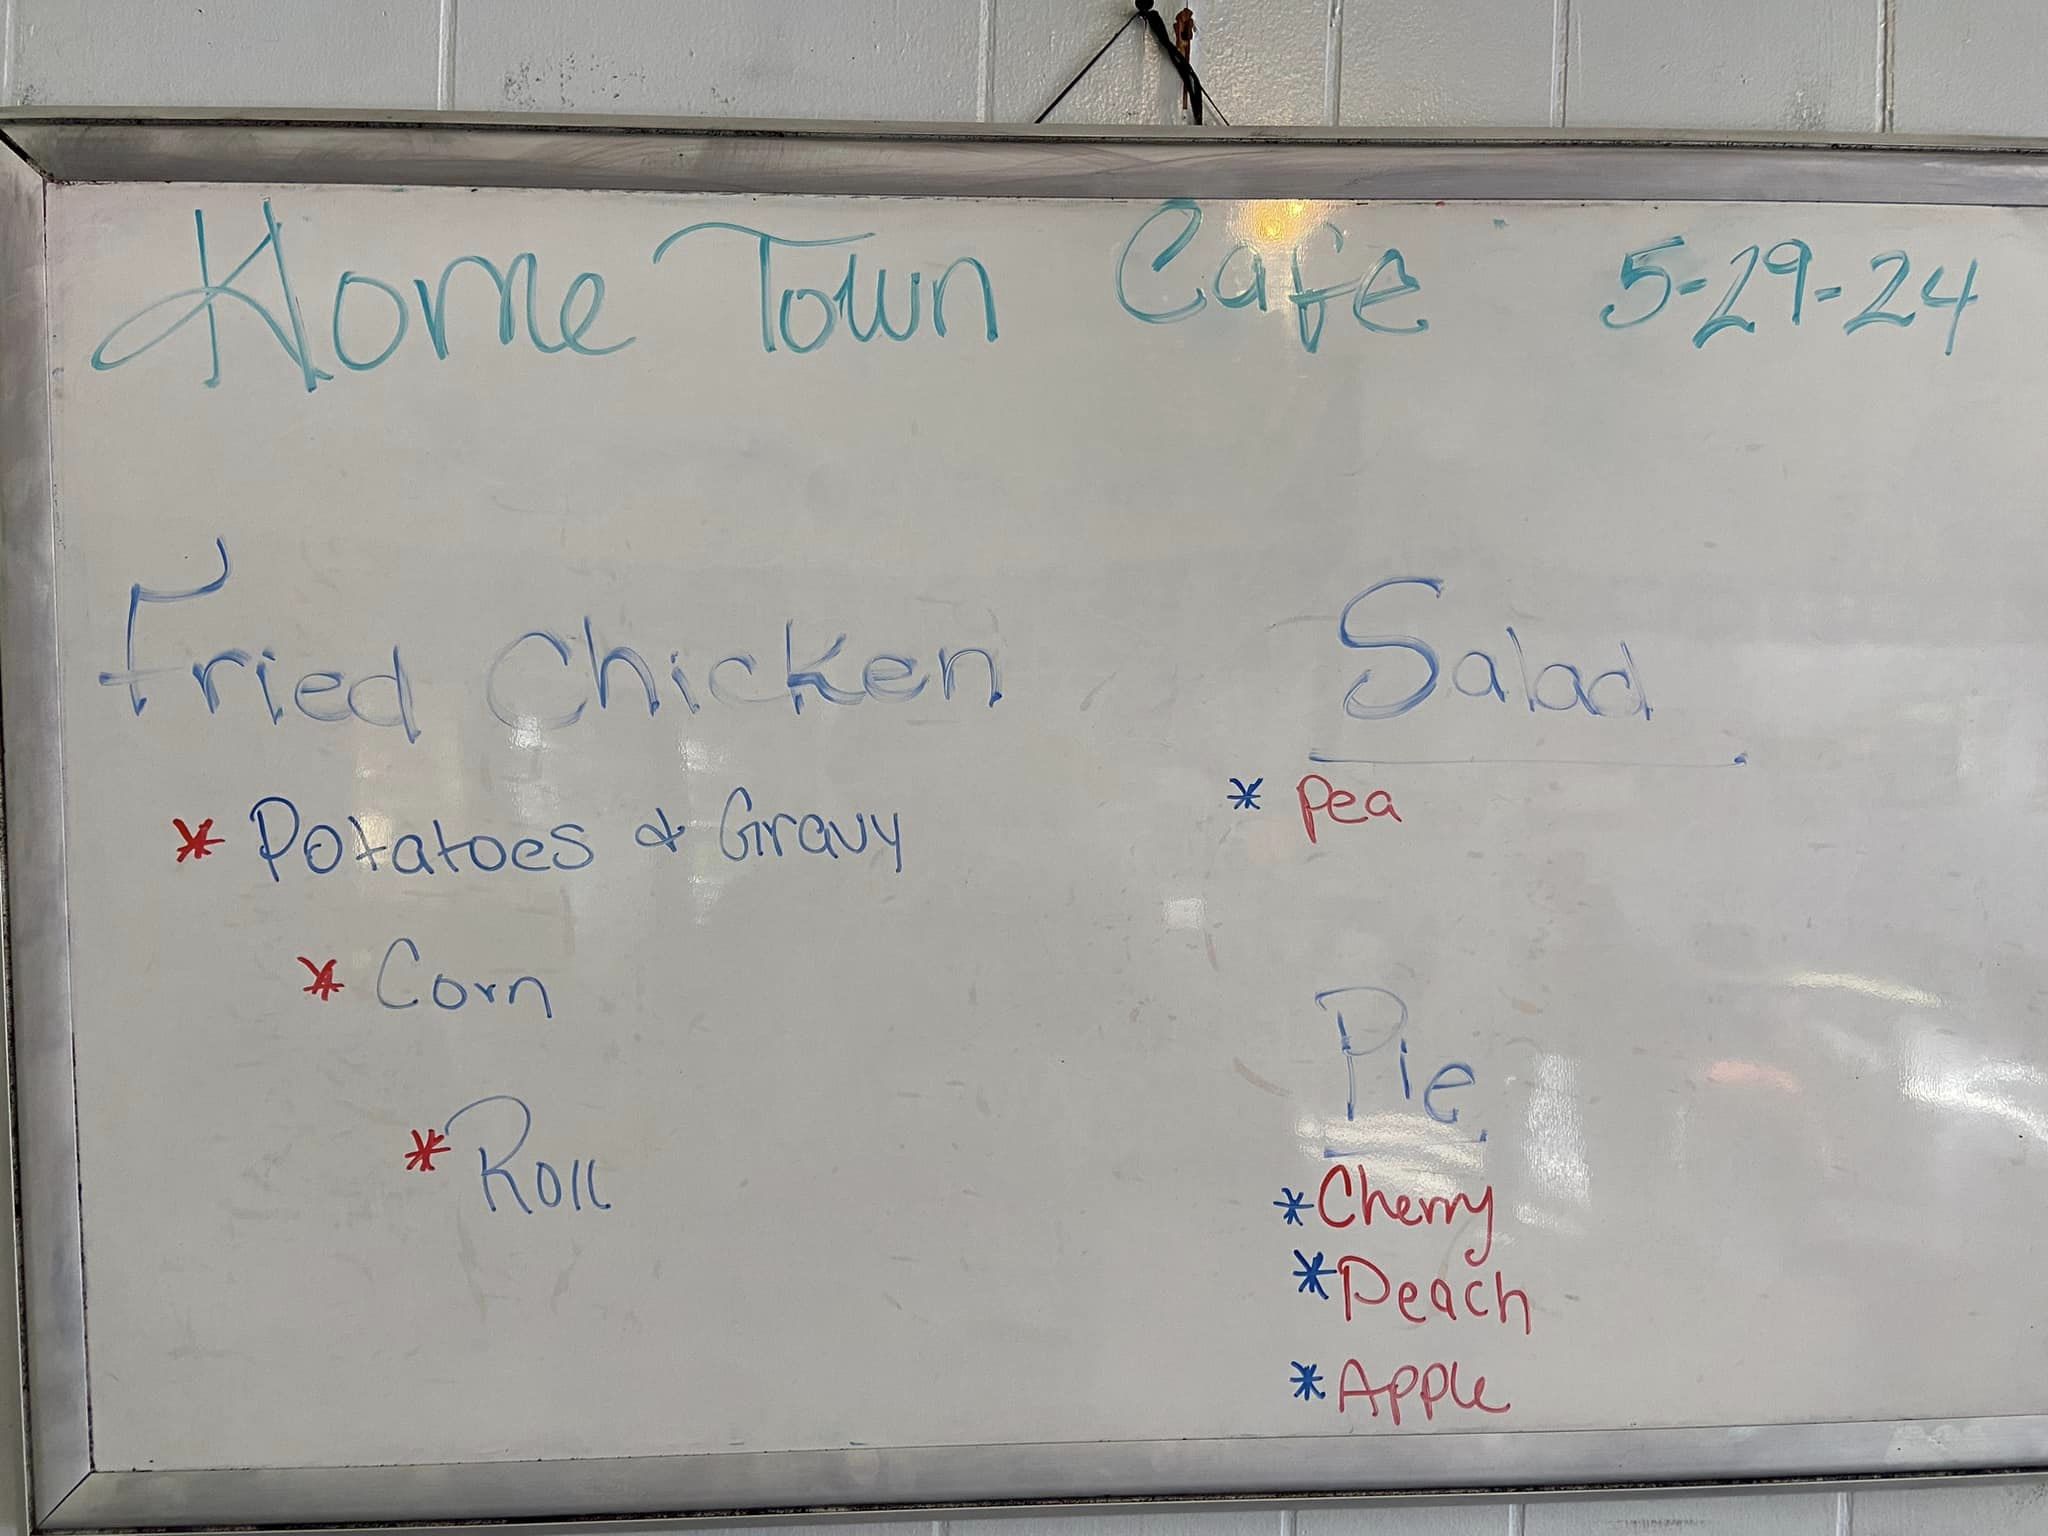 Home Town Cafe 5-29-24
Fried Chicken
* Potatoes & Gravy
* Corn
* Roll
Salad
* Pea
Pie
* Cherry
* Peach
* Apple